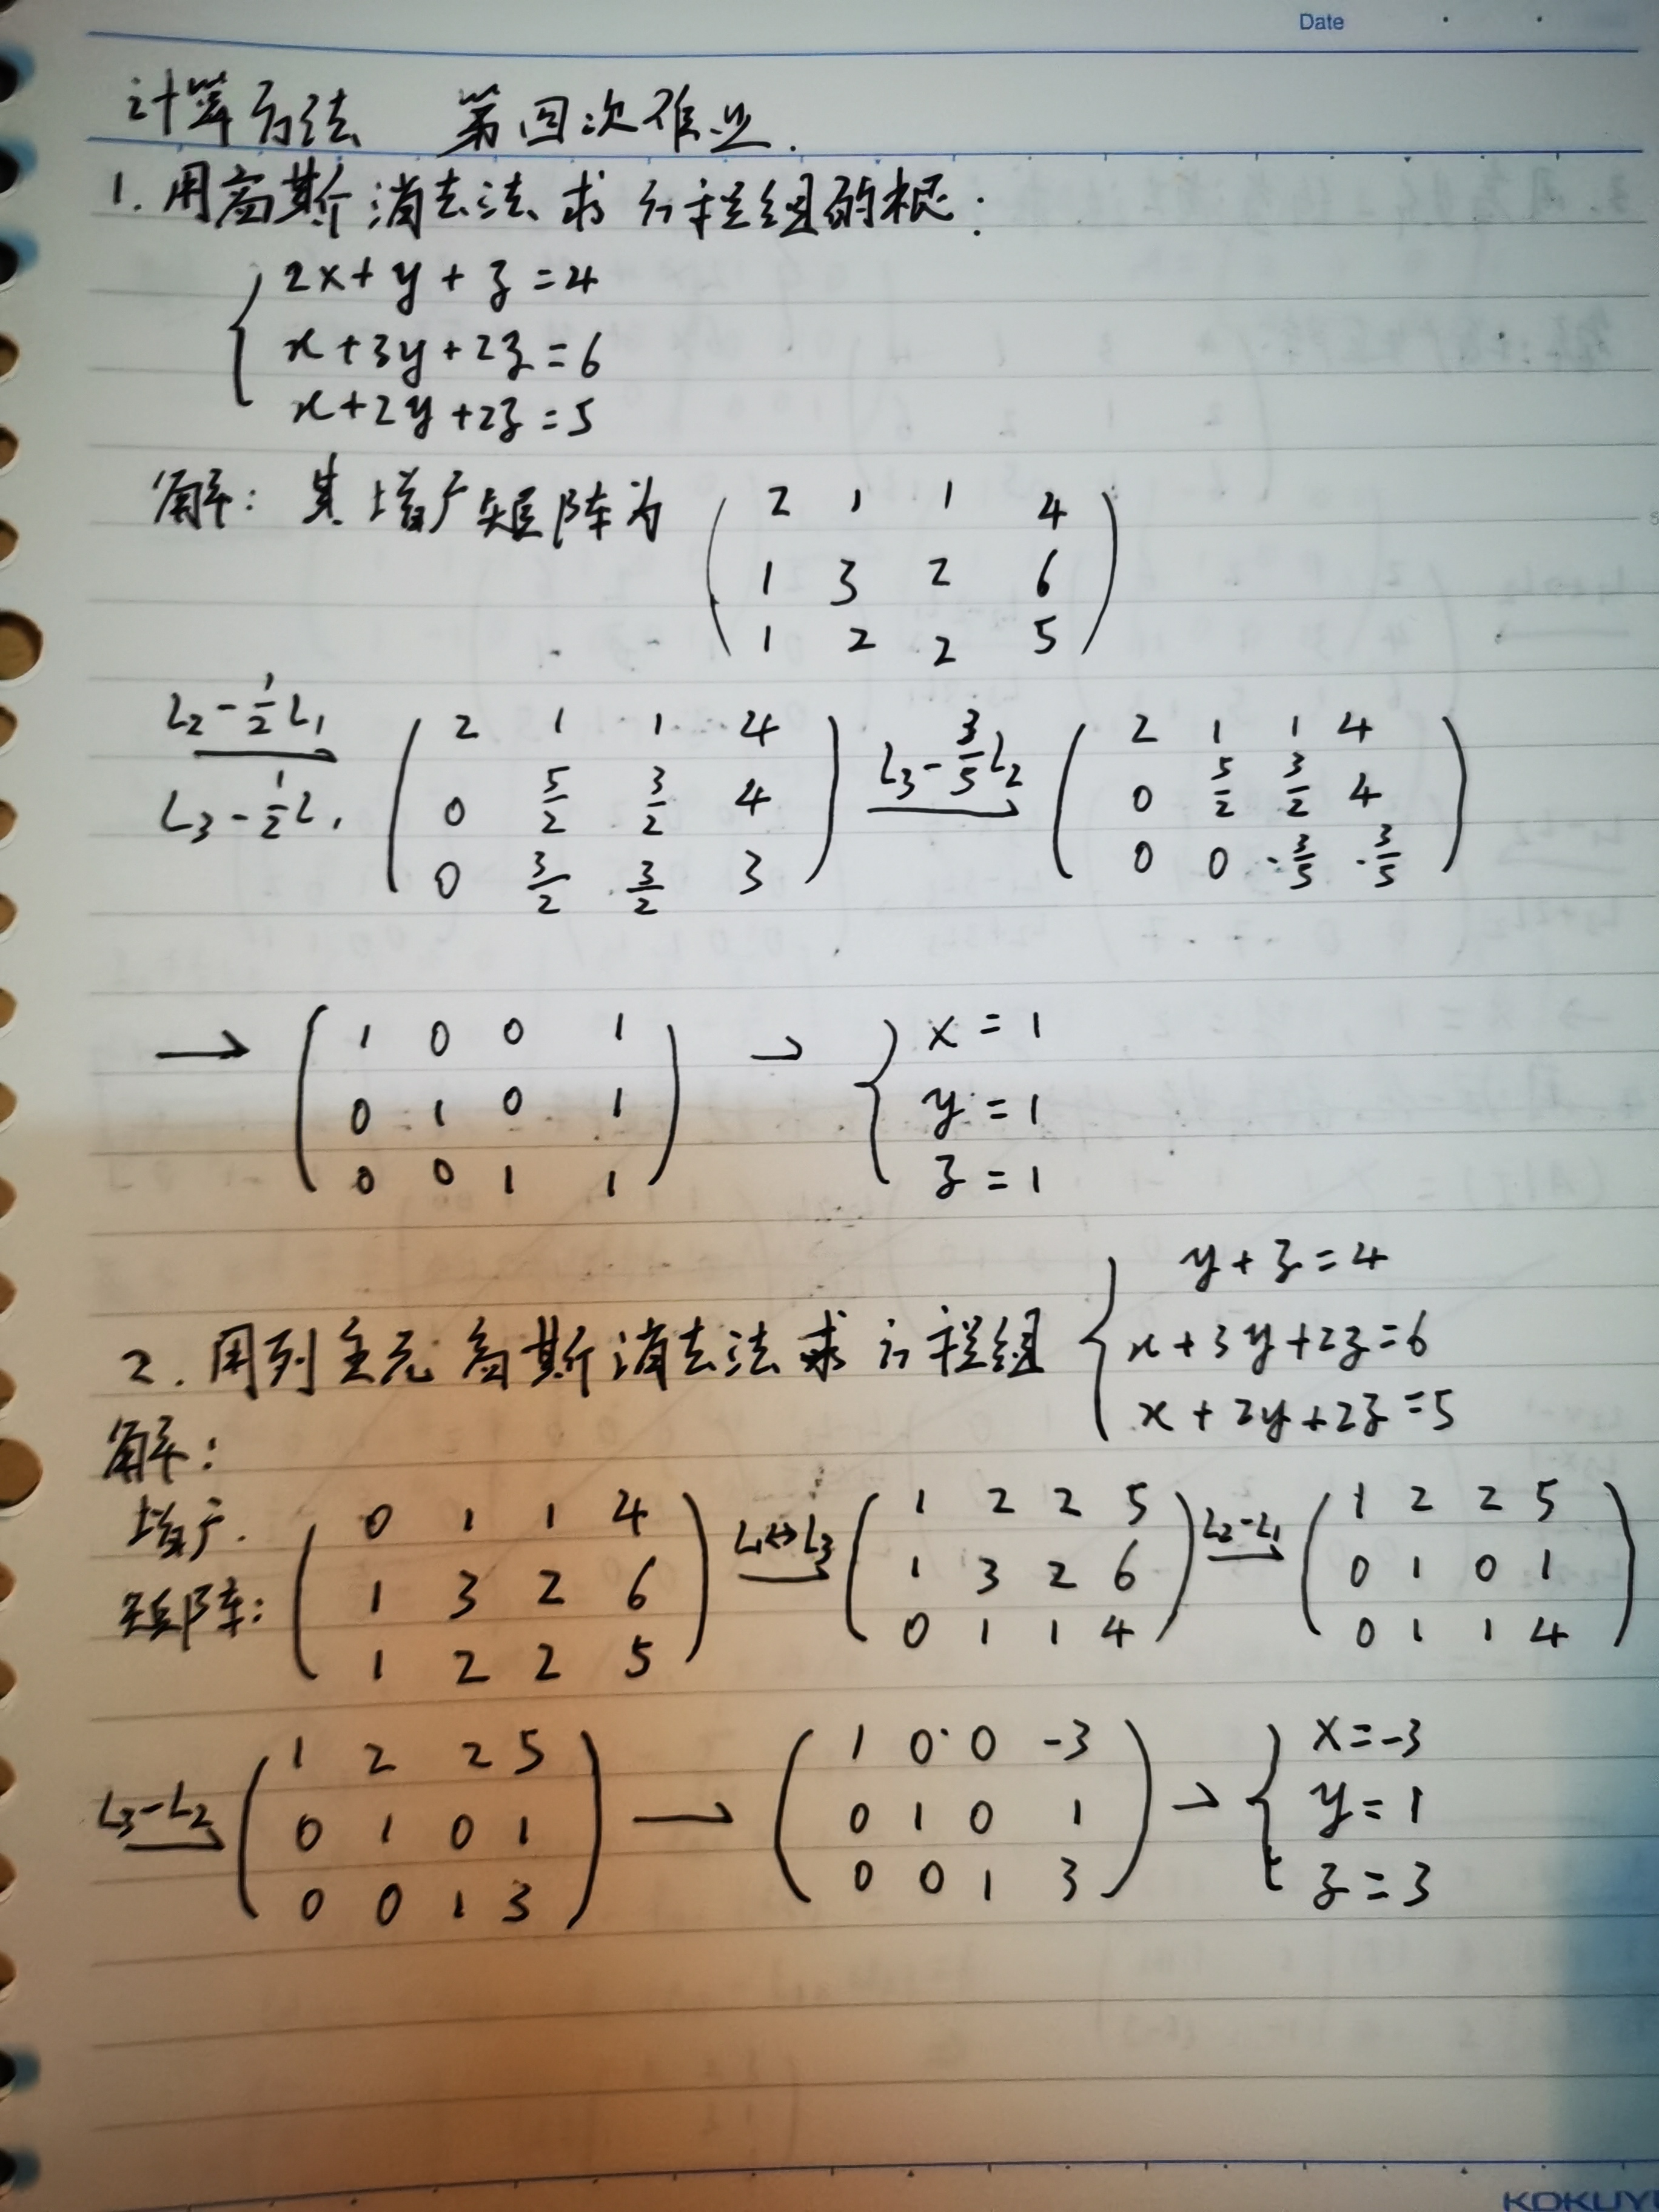 Date
计算方法 第四次作业.
1. 用高斯消去法求方程组的根:
2x+y+z=4
x+3y+2z=6
x+2y+2z=5
解: 其增广矩阵为
2 1 1 4
1 3 2 6
1 2 2 5
L₂-½L₁
L₃-½L₁
2 1 1 4
0 5/2 3/2 4
0 3/2 3/2 3
L₃-3/5L₂
2 1 1 4
0 5/2 3/2 4
0 0 -3/5 -3/5
→
1 0 0 1
0 1 0 1
0 0 1 1
→
x=1
y=1
z=1
2. 用列主元高斯消去法求方程组
y+z=4
x+3y+2z=6
x+2y+2z=5
解:
增广
矩阵:
0 1 1 4
1 3 2 6
1 2 2 5
L₁↔L₃
1 2 2 5
1 3 2 6
0 1 1 4
L₂-L₁
1 2 2 5
0 1 0 1
0 1 1 4
L₃-L₂
1 2 2 5
0 1 0 1
0 0 1 3
→
1 0 0 -3
0 1 0 1
0 0 1 3
→
x=-3
y=1
z=3
KOKUY